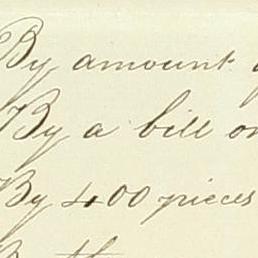 By amount
By a bill on
By 400 pieces
By